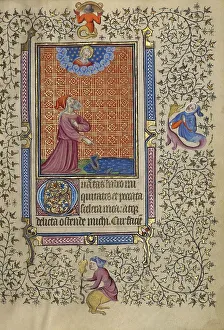 Quãtas habeo ini
quitates et peccata
scelera mea. atq;
delicta ostende michi. Cur facie